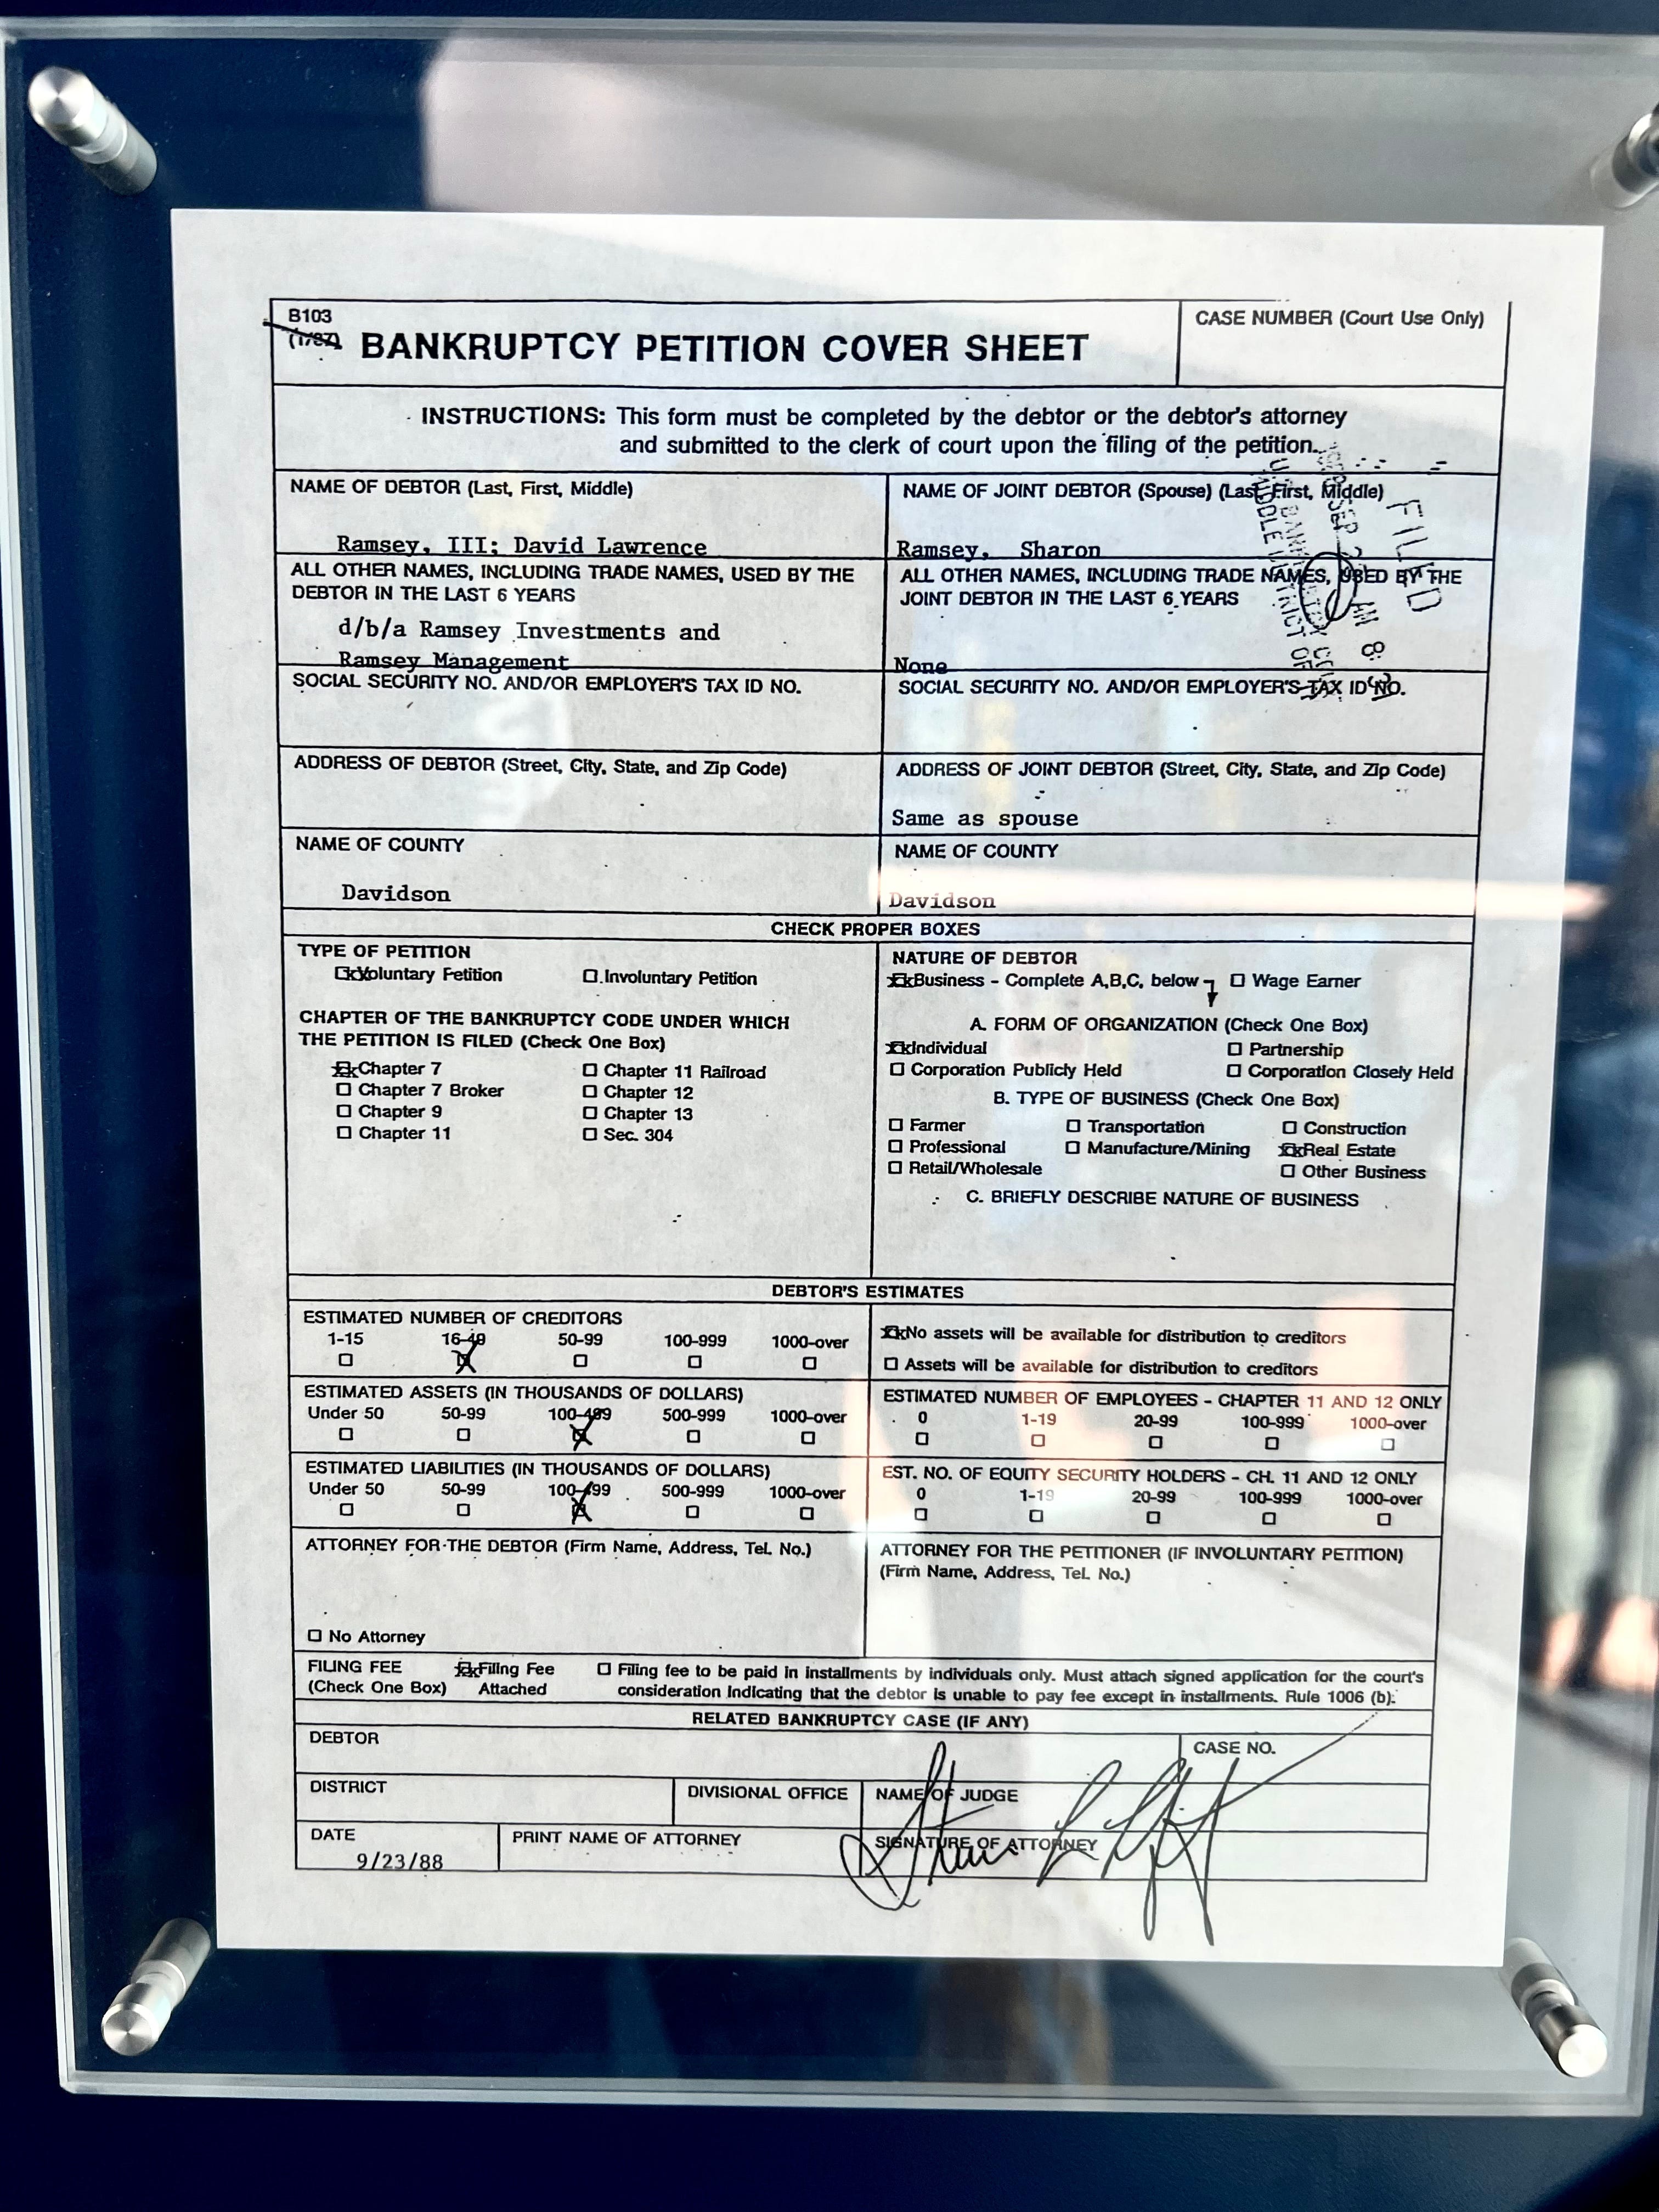 B103
(1/87)
BANKRUPTCY PETITION COVER SHEET
CASE NUMBER (Court Use Only)
INSTRUCTIONS: This form must be completed by the debtor or the debtor's attorney
and submitted to the clerk of court upon the filing of the petition.
NAME OF DEBTOR (Last, First, Middle)
Ramsey, III; David Lawrence
NAME OF JOINT DEBTOR (Spouse) (Last, First, Middle)
Ramsey, Sharon
FILED
ALL OTHER NAMES, INCLUDING TRADE NAMES, USED BY THE
DEBTOR IN THE LAST 6 YEARS
d/b/a Ramsey Investments and
Ramsey Management
ALL OTHER NAMES, INCLUDING TRADE NAMES, USED BY THE
JOINT DEBTOR IN THE LAST 6 YEARS
None
SOCIAL SECURITY NO. AND/OR EMPLOYER'S TAX ID NO.
SOCIAL SECURITY NO. AND/OR EMPLOYER'S TAX ID NO.
ADDRESS OF DEBTOR (Street, City, State, and Zip Code)
ADDRESS OF JOINT DEBTOR (Street, City, State, and Zip Code)
Same as spouse
NAME OF COUNTY
Davidson
NAME OF COUNTY
Davidson
CHECK PROPER BOXES
TYPE OF PETITION
Voluntary Petition
Involuntary Petition
CHAPTER OF THE BANKRUPTCY CODE UNDER WHICH
THE PETITION IS FILED (Check One Box)
Chapter 7
Chapter 11 Railroad
Chapter 7 Broker
Chapter 12
Chapter 9
Chapter 13
Chapter 11
Sec. 304
NATURE OF DEBTOR
Business - Complete A,B,C, below
Wage Earner
A. FORM OF ORGANIZATION (Check One Box)
Individual
Partnership
Corporation Publicly Held
Corporation Closely Held
B. TYPE OF BUSINESS (Check One Box)
Farmer
Transportation
Construction
Professional
Manufacture/Mining
Real Estate
Retail/Wholesale
Other Business
C. BRIEFLY DESCRIBE NATURE OF BUSINESS
DEBTOR'S ESTIMATES
ESTIMATED NUMBER OF CREDITORS
1-15 16-49 50-99 100-999 1000-over
No assets will be available for distribution to creditors
Assets will be available for distribution to creditors
ESTIMATED ASSETS (IN THOUSANDS OF DOLLARS)
Under 50 50-99 100-499 500-999 1000-over
ESTIMATED NUMBER OF EMPLOYEES - CHAPTER 11 AND 12 ONLY
0 1-19 20-99 100-999 1000-over
ESTIMATED LIABILITIES (IN THOUSANDS OF DOLLARS)
Under 50 50-99 100-499 500-999 1000-over
EST. NO. OF EQUITY SECURITY HOLDERS - CH. 11 AND 12 ONLY
0 1-19 20-99 100-999 1000-over
ATTORNEY FOR THE DEBTOR (Firm Name, Address, Tel. No.)
No Attorney
ATTORNEY FOR THE PETITIONER (IF INVOLUNTARY PETITION)
(Firm Name, Address, Tel. No.)
FILING FEE
(Check One Box)
Filing Fee
Attached
Filing fee to be paid in installments by individuals only. Must attach signed application for the court's
consideration indicating that the debtor is unable to pay fee except in installments. Rule 1006 (b).
RELATED BANKRUPTCY CASE (IF ANY)
DEBTOR
CASE NO.
DISTRICT
DIVISIONAL OFFICE
NAME OF JUDGE
DATE
9/23/88
PRINT NAME OF ATTORNEY
SIGNATURE OF ATTORNEY